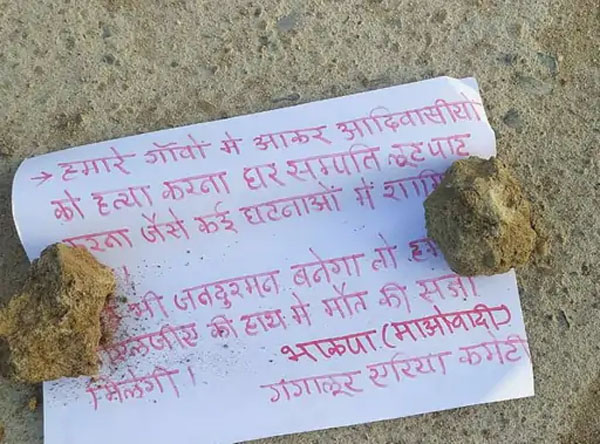 → हमारे गाँवो मे आकर आदिवासीयो
को हत्या करना घर सम्पति लूट पाट
करना जैसे कई घटनाओं में
भी जनदुश्मन बनेगा तो
की हाथ मे मौत की सजा
मिलेगी।
भाकपा (माओवादी)
गंगालूर एरिया कमेटी